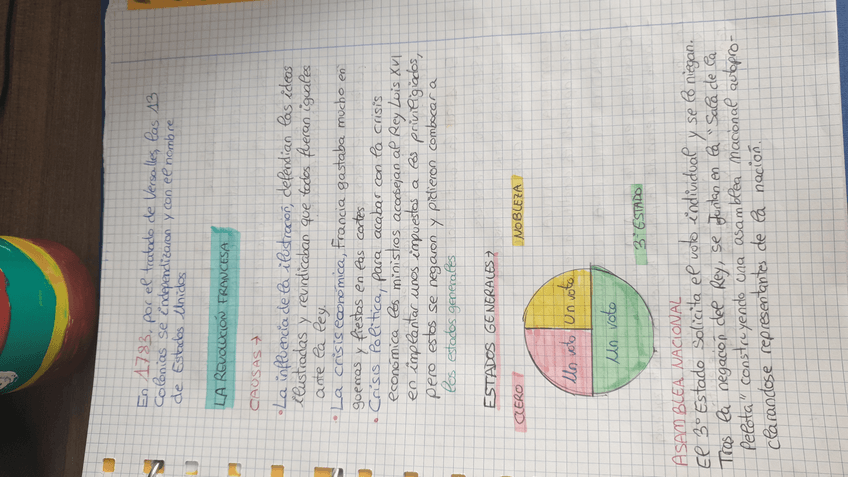 En 1783, por el tratado de Versalles, las 13
Colonias se independizaron y con el nombre
de Estados Unidos
LA REVOLUCIÓN FRANCESA
CAUSAS →
• La influencia de la ilustración, defendían las ideas
ilustradas y reivindicaban que todos fueran iguales
ante la ley.
• La crisis económica, Francia gastaba mucho en
guerras y fiestas en las cortes
• Crisis Política, Para acabar con la crisis
económica los ministros acosejan al Rey Luis XVI
en implantar unos impuestos a los privilegiados,
pero estos se negaron y pidieron combocar a
los estados generales
ESTADOS GENERALES →
CLERO
NOBLEZA
Un voto
Un voto
Un voto
3º ESTADO
ASAMBLEA NACIONAL
El 3º Estado solicita el voto individual y se lo niegan.
Tras la negación del Rey, se juntan en la "Sala de la
Pelota" construyendo una asamblea nacional autopro-
clarandose representantes de la nación.